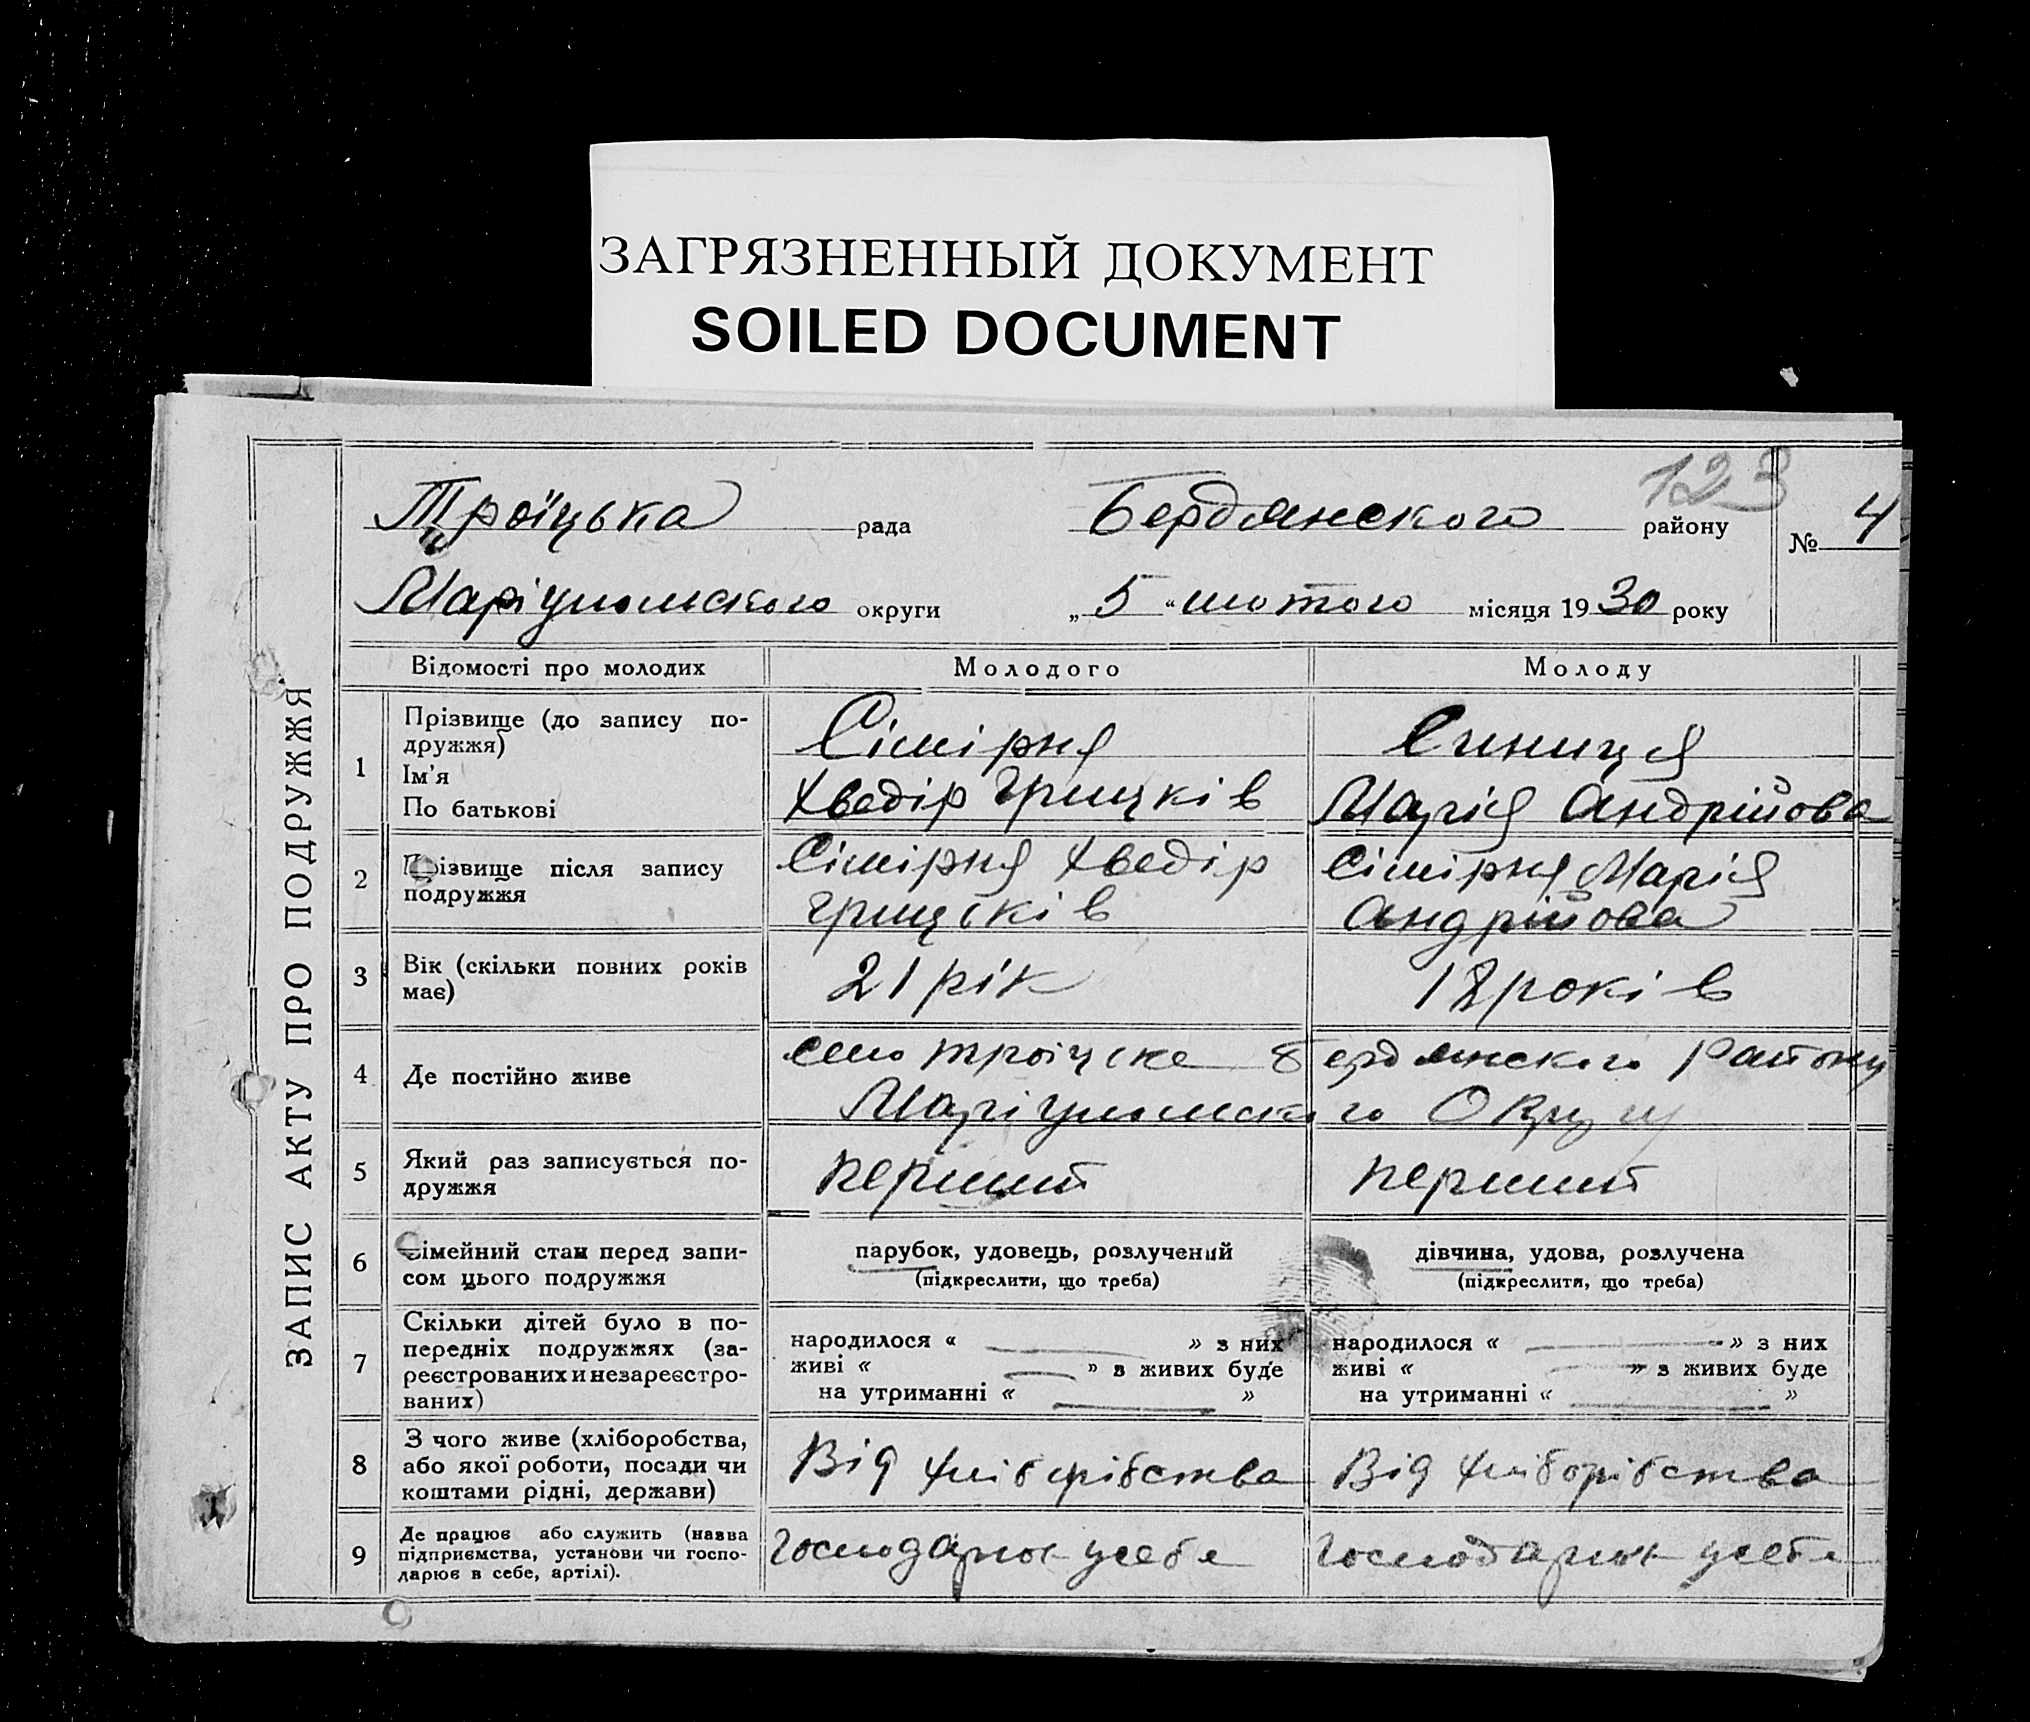 ЗАГРЯЗНЕННЫЙ ДОКУМЕНТ
SOILED DOCUMENT
123
Троїцька рада Бердянского району № 4
Маріупольского округи „ 5 “ лютого місяця 1930 року
ЗАПИС АКТУ ПРО ПОДРУЖЖЯ
Відомості про молодих Молодого Молоду
1 Прізвище (до запису по-
дружжя)
Ім'я
По батькові
Сімірня
Хведір Грицків
Синиця
Марія Андрійова
2 Прізвище після запису
подружжя
Сімірня Хведір
Грицьків
Сімірня Марія
Андрійова
3 Вік (скільки повних років
має)
21 рік
18 років
4 Де постійно живе
село Троіцке Бердянского Району
Маріупольского Округу
5 Який раз записується по-
дружжя
перший
перший
6 Сімейний стан перед запи-
сом цього подружжя
парубок, удовець, розлучений
(підкреслити, що треба)
дівчина, удова, розлучена
(підкреслити, що треба)
7 Скільки дітей було в по-
передніх подружжях (за-
реєстрованих и незареєстро-
ваних)
народилося « — » з них
живі « — » з живих буде
на утриманні « — »
народилося « — » з них
живі « — » з живих буде
на утриманні « — »
8 З чого живе (хліборобства,
або якої роботи, посади чи
коштами рідні, держави)
Від хліборібства
Від хліборібства
9 Де працює або служить (назва
підприємства, установи чи госпо-
дарює в себе, артілі).
усебе
усебе